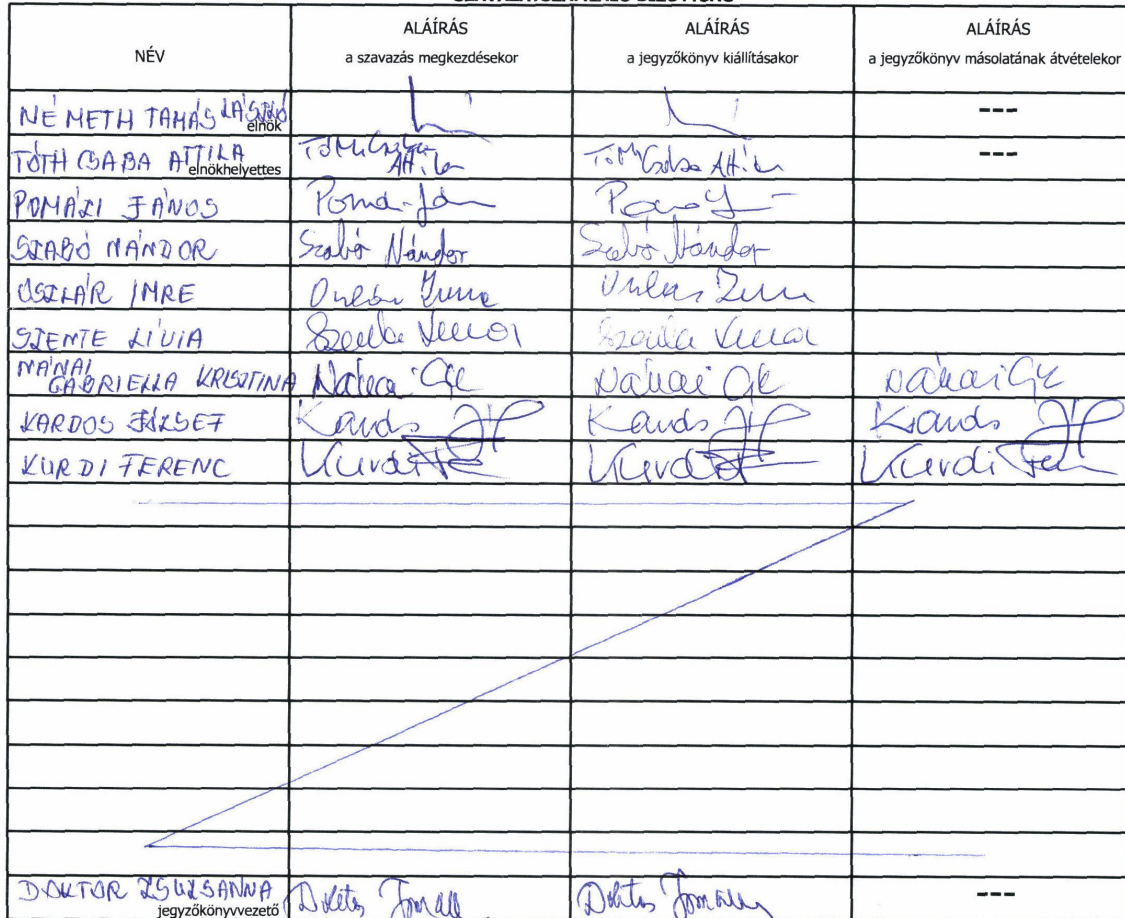 NÉV
ALÁÍRÁS
a szavazás megkezdésekor
ALÁÍRÁS
a jegyzőkönyv kiállításakor
ALÁÍRÁS
a jegyzőkönyv másolatának átvételekor
NÉMETH TAMÁS LÁSZLÓ
elnök
---
TÓTH CSABA ATTILA
elnökhelyettes
Tóth Csaba Attila
Tóth Csaba Attila
---
POMÁZI JÁNOS
SZABÓ NÁNDOR
Szabó Nándor
Szabó Nándor
IMRE
Imre
SZENTE LÍVIA
Szente
Szente
NÁNAI
GABRIELLA KRISZTINA
Nánai GK
Nánai GK
Nánai GK
KARDOS JÓZSEF
Kardos
Kardos
Kardos
KURDI FERENC
Kurdi
Kurdi
Kurdi
DOKTOR ZSUZSANNA
jegyzőkönyvvezető
---